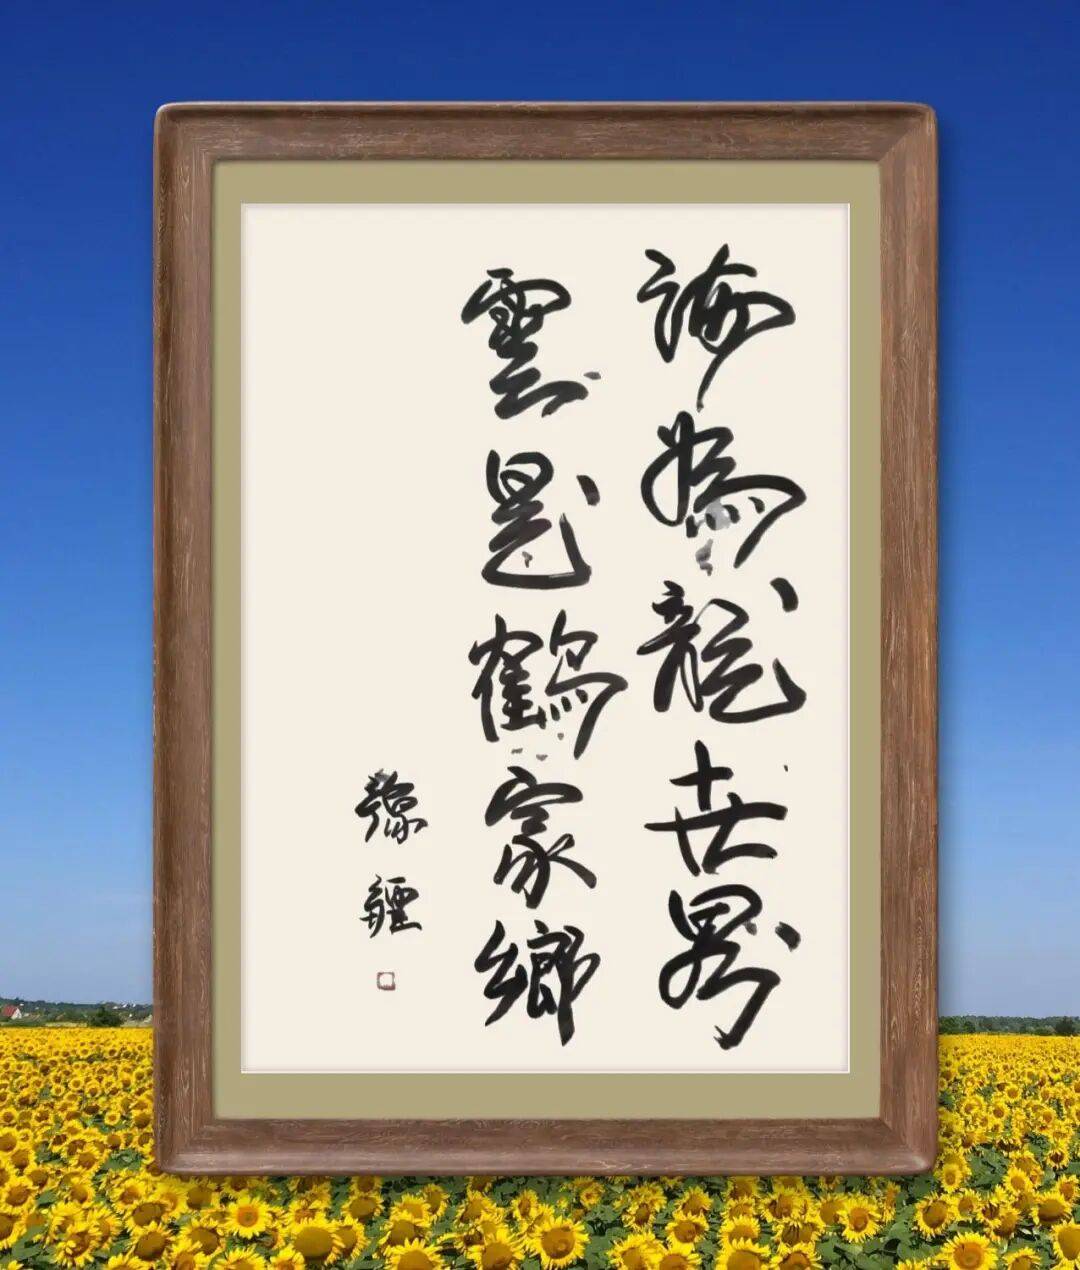 海為龍世界
雲是鶴家鄉
疆